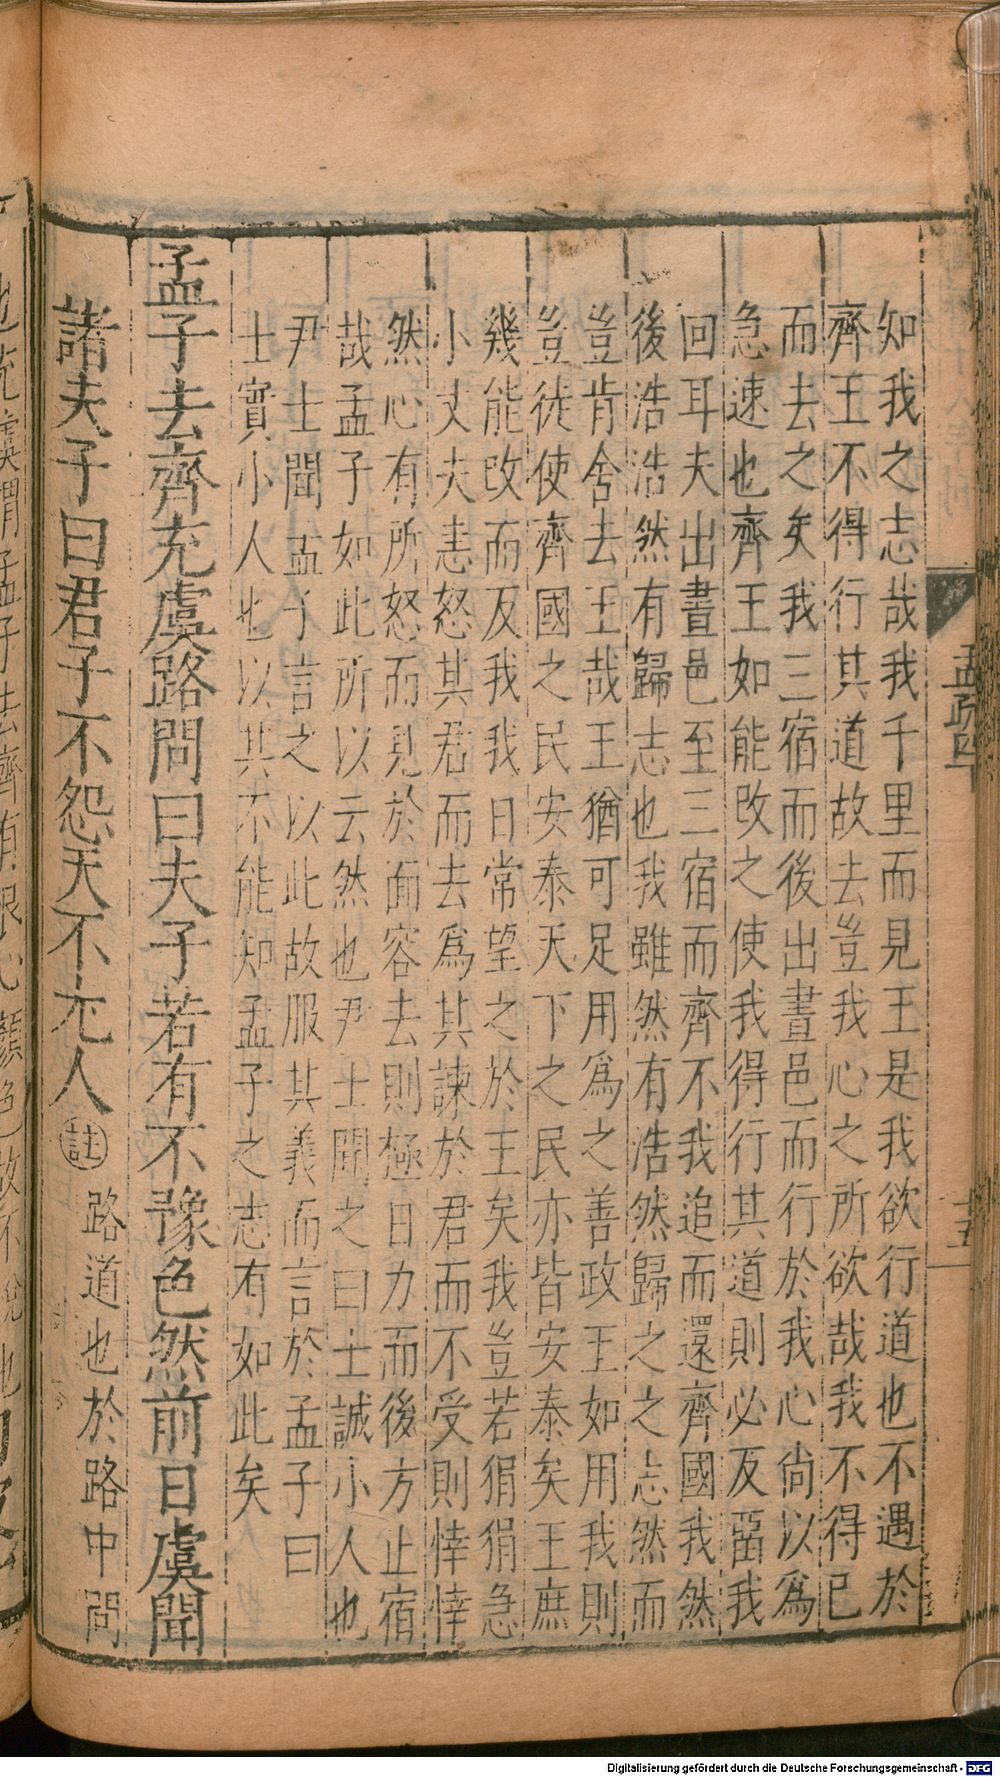 知我之志哉我千里而見王是我欲行道也不遇於
齊王不得行其道故去豈我心之所欲哉我不得已
而去之矣我三宿而後出晝邑而行於我心尚以為
急速也齊王如能改之使我得行其道則必反留我
回耳夫出晝邑至三宿而齊不我追而還齊國我然
後浩浩然有歸志也我雖然有浩然歸之之志然而
豈肯舍去王哉王猶可足用爲之善政王如用我則
豈徒使齊國之民安泰天下之民亦皆安泰矣王庶
幾能改而反我我日常望之於王矣我豈若狷狷急
小丈夫恚怒其君而去爲其諫於君而不受則悻悻
然心有所怒而見於面容去則極日力而後方止宿
哉孟子如此所以云然也尹士聞之曰士誠小人也
尹士聞孟子言之以此故服其義而言於孟子曰
士實小人也以其不能知孟子之志有如此矣
孟子去齊充虞路問曰夫子若有不豫色然前日虞聞
諸夫子曰君子不怨天不尤人註路道也於路中問
孟疏四下
十五
Digitalisierung gefördert durch die Deutsche Forschungsgemeinschaft - DFG